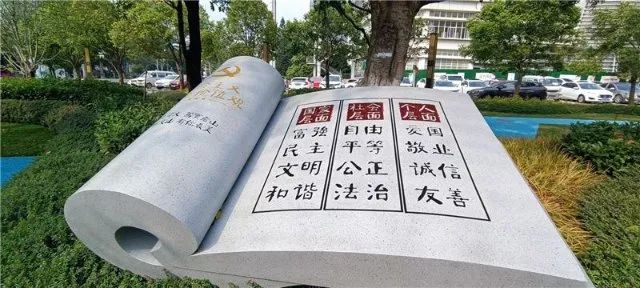 国家层面
富强
民主
文明
和谐
社会层面
自由
平等
公正
法治
个人层面
爱国
敬业
诚信
友善